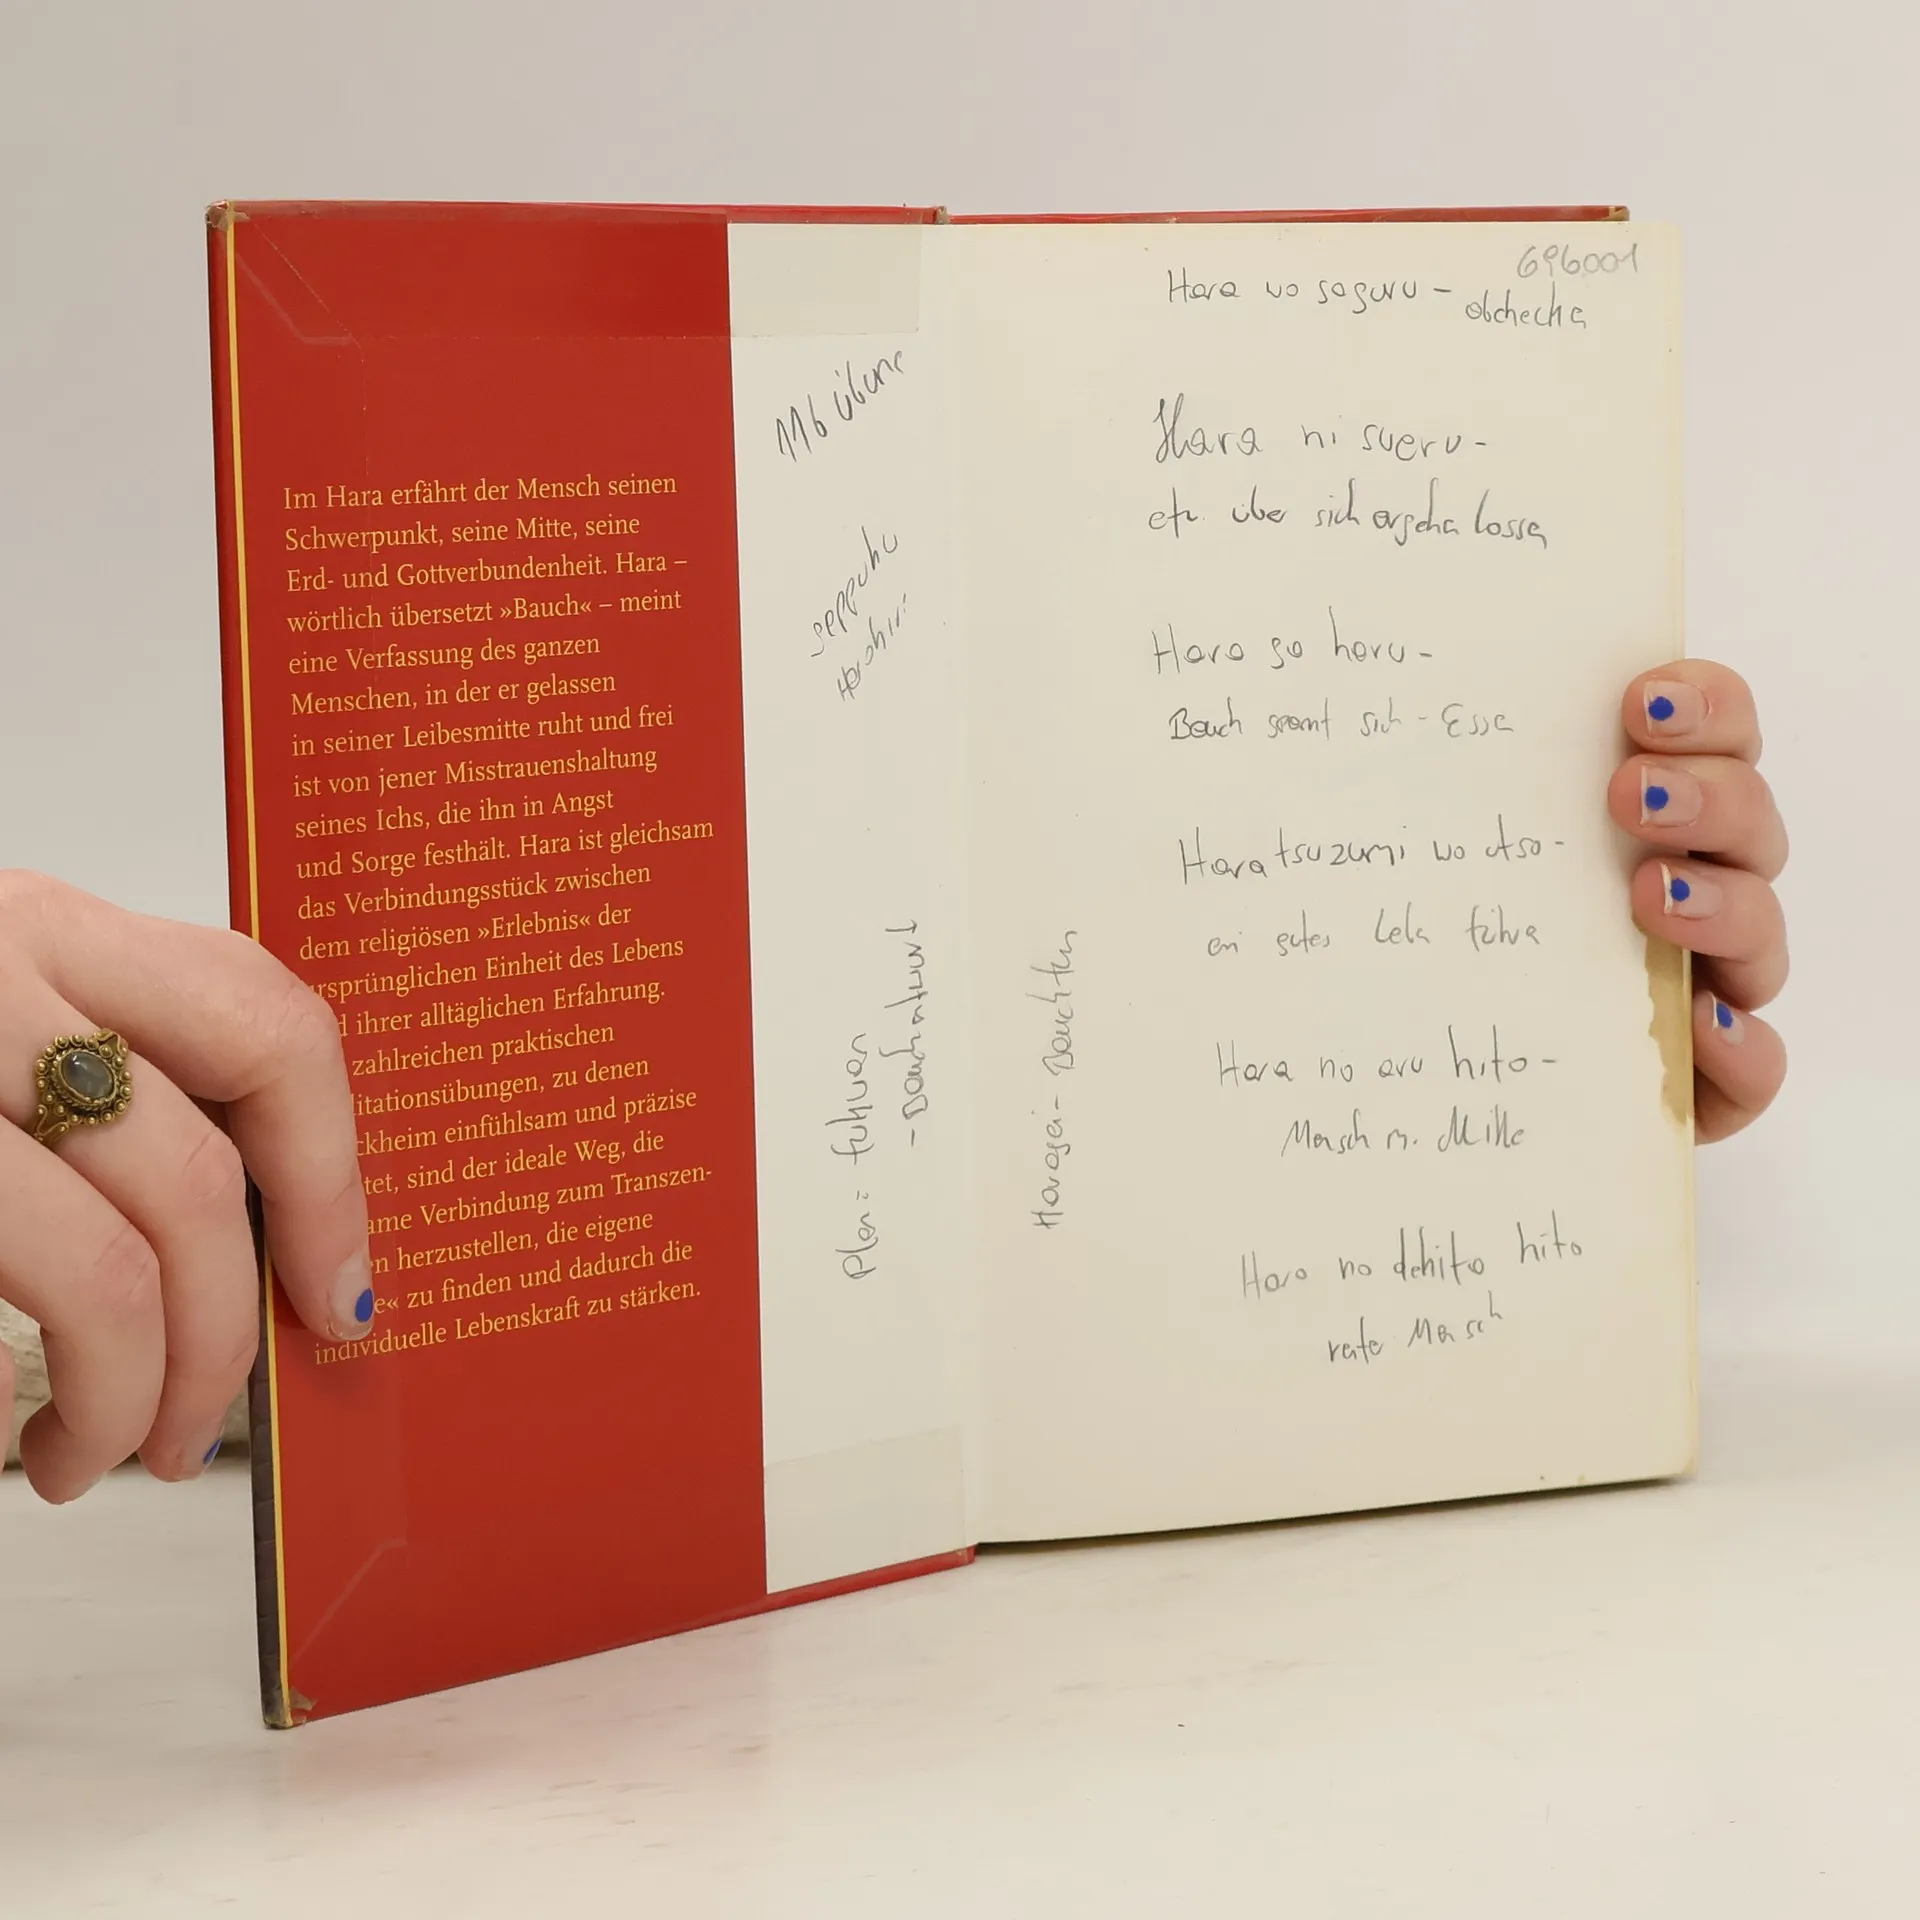 Im Hara erfährt der Mensch seinen
Schwerpunkt, seine Mitte, seine
Erd- und Gottverbundenheit. Hara –
wörtlich übersetzt »Bauch« – meint
eine Verfassung des ganzen
Menschen, in der er gelassen
in seiner Leibesmitte ruht und frei
ist von jener Misstrauenshaltung
seines Ichs, die ihn in Angst
und Sorge festhält. Hara ist gleichsam
das Verbindungsstück zwischen
dem religiösen »Erlebnis« der
ursprünglichen Einheit des Lebens
d ihrer alltäglichen Erfahrung.
zahlreichen praktischen
litationsübungen, zu denen
ckheim einfühlsam und präzise
tet, sind der ideale Weg, die
ame Verbindung zum Transzen-
n herzustellen, die eigene
e« zu finden und dadurch die
individuelle Lebenskraft zu stärken.
116
seppuku
Harakiri
Hara wo saguru -
696001
Hara ni sueru -
über sich
Hara ga haru -
Bauch spannt sich - Esse
Hara tsuzumi wo utso -
ein gutes Lebe führe
Haragei -
Hara no aru hito -
Mensch m. Mitte
Hara no dekita hito
reife Mensch